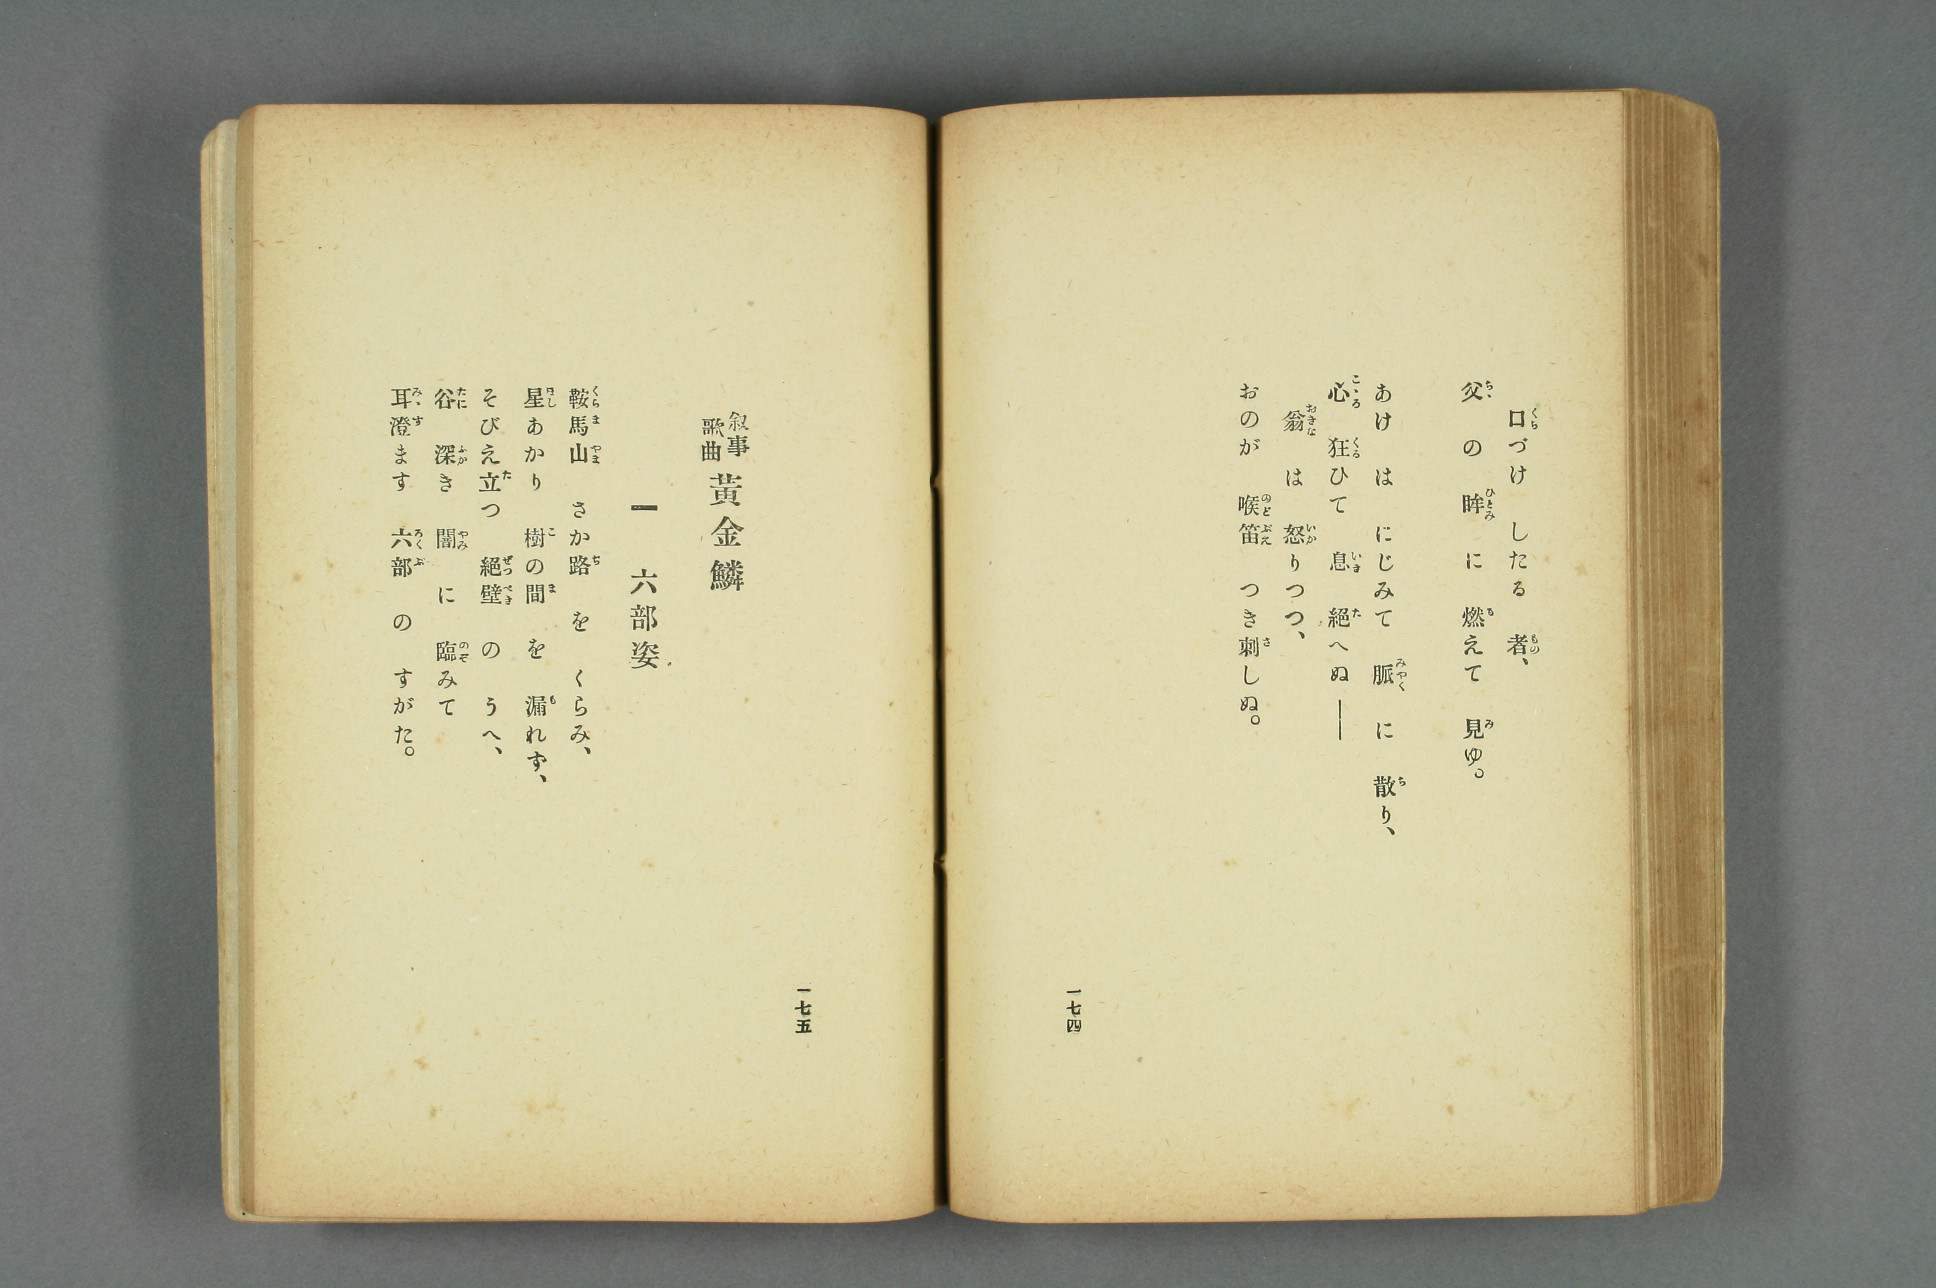 口づけ したる 者、
父 の 眸 に 燃えて 見ゆ。
あけ は にじみて 脈 に 散り、
心 狂ひて 息 絶へぬ――
翁 は 怒りつつ、
おのが 喉笛 つき刺しぬ。
一七四
叙事歌曲 黄金鱗
一 六部姿
鞍馬山 さか路 を くらみ、
星あかり 樹の間 を 漏れず、
そびえ立つ 絶壁 の うへ、
谷 深き 闇 に 臨みて
耳澄ます 六部 の すがた。
一七五